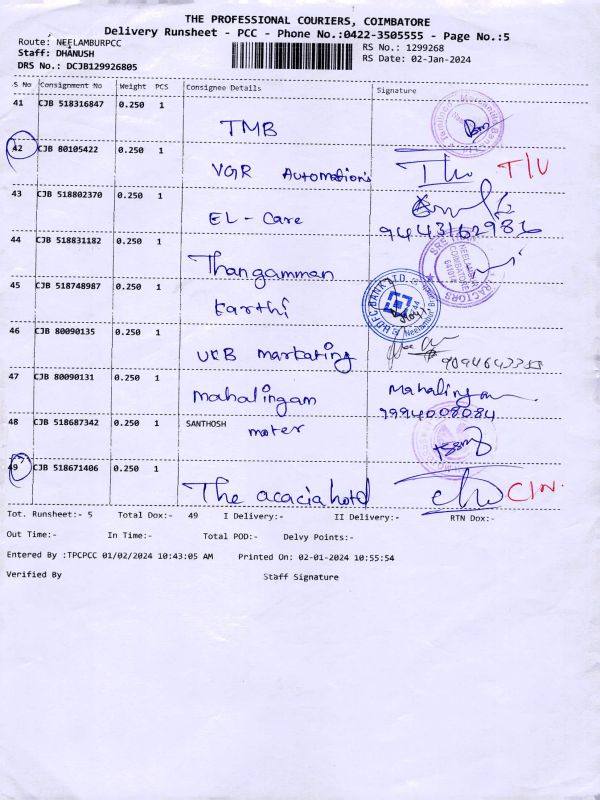 THE PROFESSIONAL COURIERS, COIMBATORE
Delivery Runsheet - PCC - Phone No.:0422-3505555 - Page No.:5
Route: NEELAMBURPCC
RS No.: 1299268
Staff: DHANUSH
RS Date: 02-Jan-2024
DRS No.: DCJB129926805
S No Consignment No Weight PCS Consignee Details Signature
41 CJB 518316847 0.250 1
TMB
42 CJB 80105422 0.250 1
VGR Automations T/U
43 CJB 518802370 0.250 1
EL - Care 9443162986
44 CJB 518831182 0.250 1
Thangamman
45 CJB 518748987 0.250 1
Karthi
46 CJB 80090135 0.250 1
UKB marketing
47 CJB 80090131 0.250 1
mahalingam Mahalingam
9994008084
48 CJB 518687342 0.250 1 SANTHOSH
moter
49 CJB 518671406 0.250 1
The acacia hotel
Tot. Runsheet:- 5 Total Dox:- 49 I Delivery:- II Delivery:- RTN Dox:-
Out Time:- In Time:- Total POD:- Delvy Points:-
Entered By :TPCPCC 01/02/2024 10:43:05 AM Printed On: 02-01-2024 10:55:54
Verified By Staff Signature